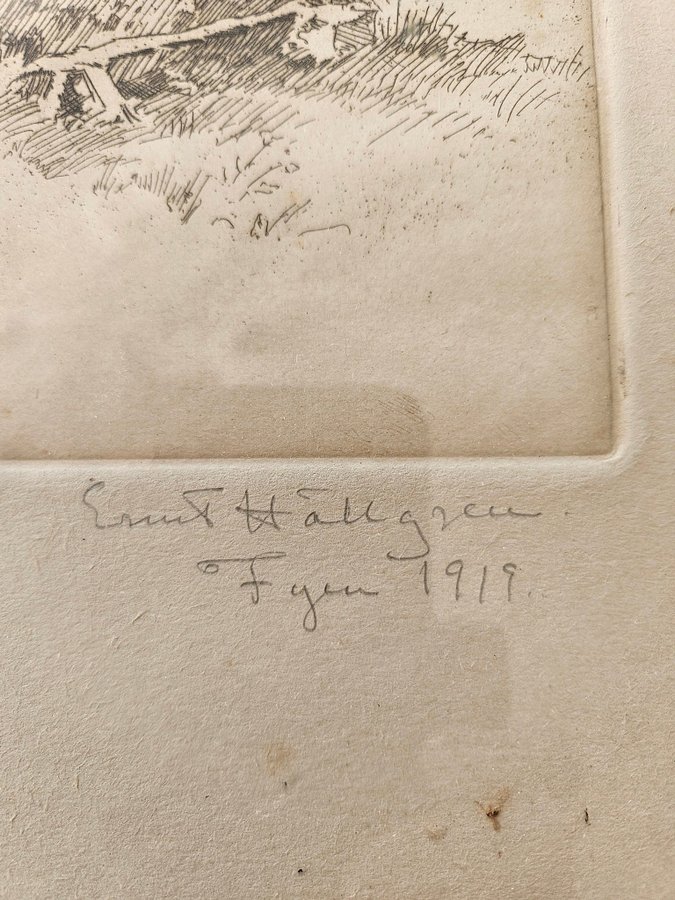 Ernst Hållgren.
Fyen 1919.